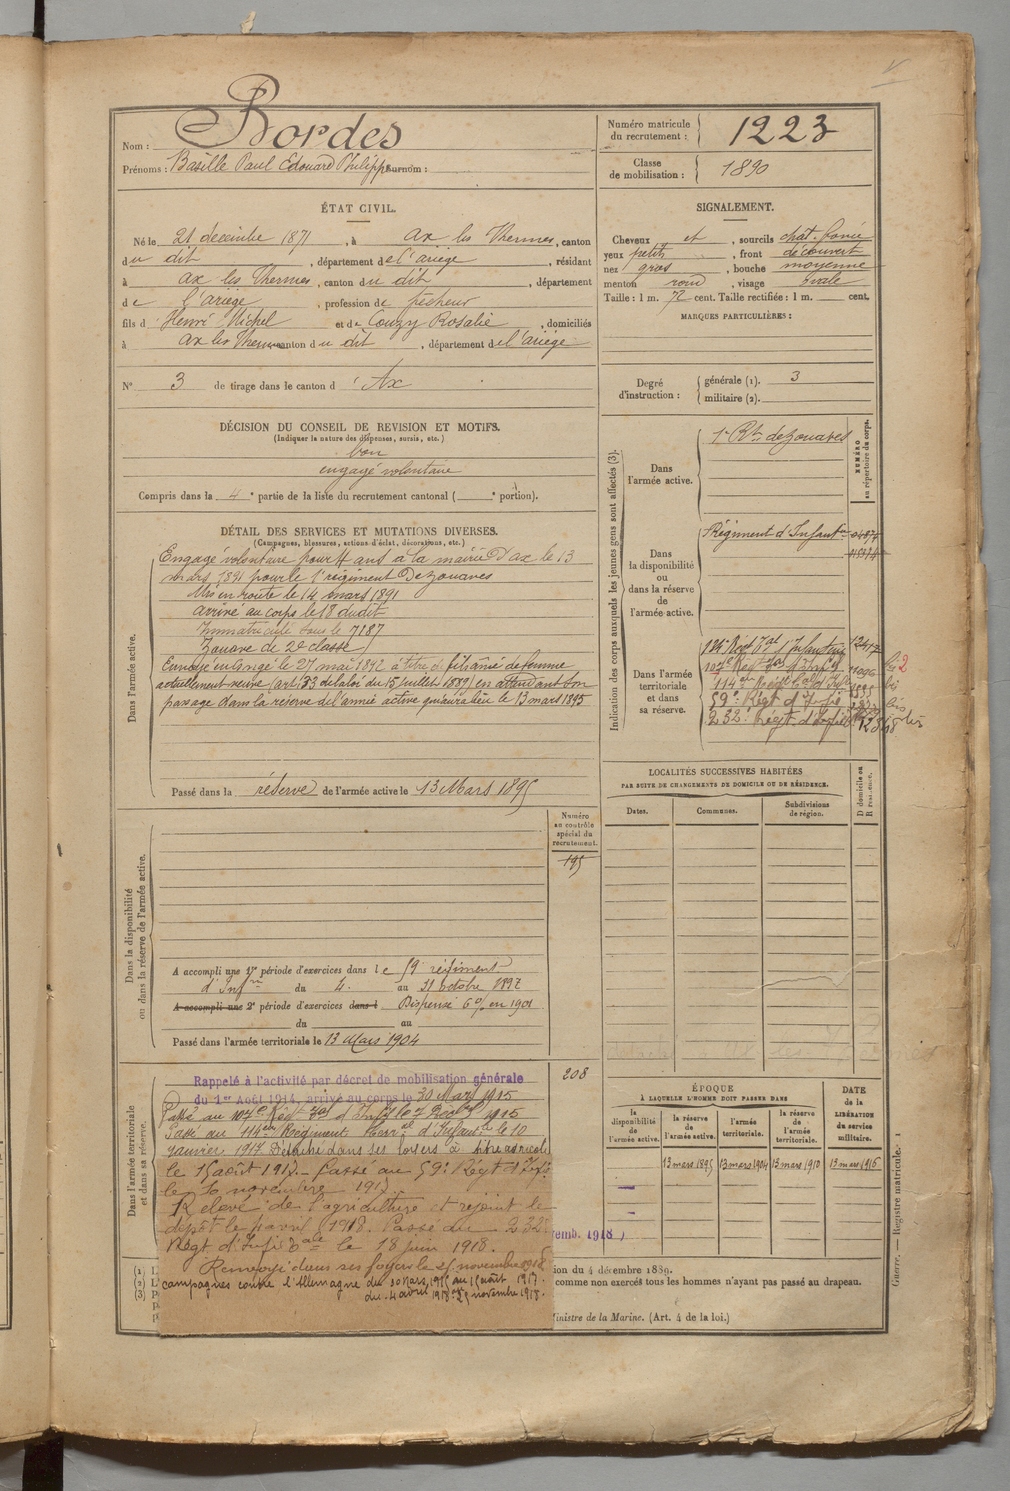 Nom : Bordes
Prénoms : Basille Paul Edouard Philippe Surnom :
Numéro matricule du recrutement : 1223
Classe de mobilisation : 1890
ÉTAT CIVIL.
Né le 21 decembre 1871, à ax les Thermes, canton
du dit, département de l'ariège, résidant
à ax les Thermes, canton du dit, département
de l'ariège, profession de pêcheur
fils d' Henri Michel et de Couzy Rosalie, domiciliés
à ax les Thermes canton du dit, département de l'ariège
N° 3 de tirage dans le canton d' Ax
SIGNALEMENT.
Cheveux et, sourcils chat. foncé
yeux petits, front découvert
nez gros, bouche moyenne
menton rond, visage ovale
Taille : 1 m. 72 cent. Taille rectifiée : 1 m. cent.
MARQUES PARTICULIÈRES :
Degré d'instruction :
générale (1). 3
militaire (2).
DÉCISION DU CONSEIL DE REVISION ET MOTIFS.
(Indiquer la nature des dispenses, sursis, etc.)
bon
engagé volontaire
Compris dans la 4e partie de la liste du recrutement cantonal ( e portion).
DÉTAIL DES SERVICES ET MUTATIONS DIVERSES.
(Campagnes, blessures, actions d'éclat, décorations, etc.)
Dans l'armée active.
Engagé volontaire pour 4 ans à la mairie d'ax le 13
mars 1891 pour le 1er régiment De zouaves
Mis en route le 14 mars 1891
arrivé au corps le 18 dudit
Immatriculé sous le 7187
Zouave de 2e classe
Envoyé en Congé le 27 mai 1892 à titre de fils ainé de femme
actuellement veuve (art 33 de la loi du 15 juillet 1889) en attendant son
passage dans la réserve de l'armée active qui aura lieu le 13 mars 1895
Passé dans la réserve de l'armée active le 13 Mars 1895
Indication des corps auxquels les jeunes gens sont affectés (3).
NUMÉRO au répertoire du corps.
Dans l'armée active.
1er Rt de zouaves
Dans la disponibilité ou dans la réserve de l'armée active.
Régiment d'Infantie
Dans l'armée territoriale et dans sa réserve.
Régt Tal d'Infanterie
107e Régt Tal d'Infie
114e Régt Tal d'Infie
59e Régt d'Infie
232e Régt d'Infie
LOCALITÉS SUCCESSIVES HABITÉES
PAR SUITE DE CHANGEMENTS DE DOMICILE OU DE RÉSIDENCE.
Dates.
Communes.
Subdivisions de région.
D domicile ou R résidence.
Numéro au contrôle spécial du recrutement.
195
Dans la disponibilité ou dans la réserve de l'armée active.
A accompli une 1re période d'exercices dans le 59e régiment
d'Infie du 4 au 31 octobre 1897
A accompli une 2e période d'exercices dans l Dispensé 6% en 1901
du au
Passé dans l'armée territoriale le 13 Mars 1904
208
Dans l'armée territoriale et dans sa réserve.
Rappelé à l'activité par décret de mobilisation générale
du 1er Août 1914, arrivé au corps le 30 Mars 1915
Passé au 107e Régt Tal d'Infie le 7 1915
Passé au 114ème Régiment Terral d'Infantie le 10
janvier 1917 Détaché dans ses foyers à titre agricole
le 15 août 1917. Passé au 59e Régt d'Infie
le 10 novembre 1917
Relevé de l'agriculture et rejoint le
dépôt le 4 avril 1918. Passé au 232e
Régt d'Infie le 18 juin 1918.
Renvoyé dans ses foyers le 25 novembre 1918
campagnes contre l'Allemagne du 30 Mars 1915 au 15 août 1917.
du 4 avril 1918 au 25 novembre 1918.
ÉPOQUE
À LAQUELLE L'HOMME DOIT PASSER DANS
la disponibilité de l'armée active.
la réserve de l'armée active.
l'armée territoriale.
la réserve de l'armée territoriale.
DATE de la LIBÉRATION du service militaire.
13 mars 1895 13 mars 1904 13 mars 1910 13 mars 1916
emb. 1918 )
ion du 4 décembre 1889.
comme non exercés tous les hommes n'ayant pas passé au drapeau.
inistre de la Marine. (Art. 4 de la loi.)
Guerre. — Registre matricule. 1